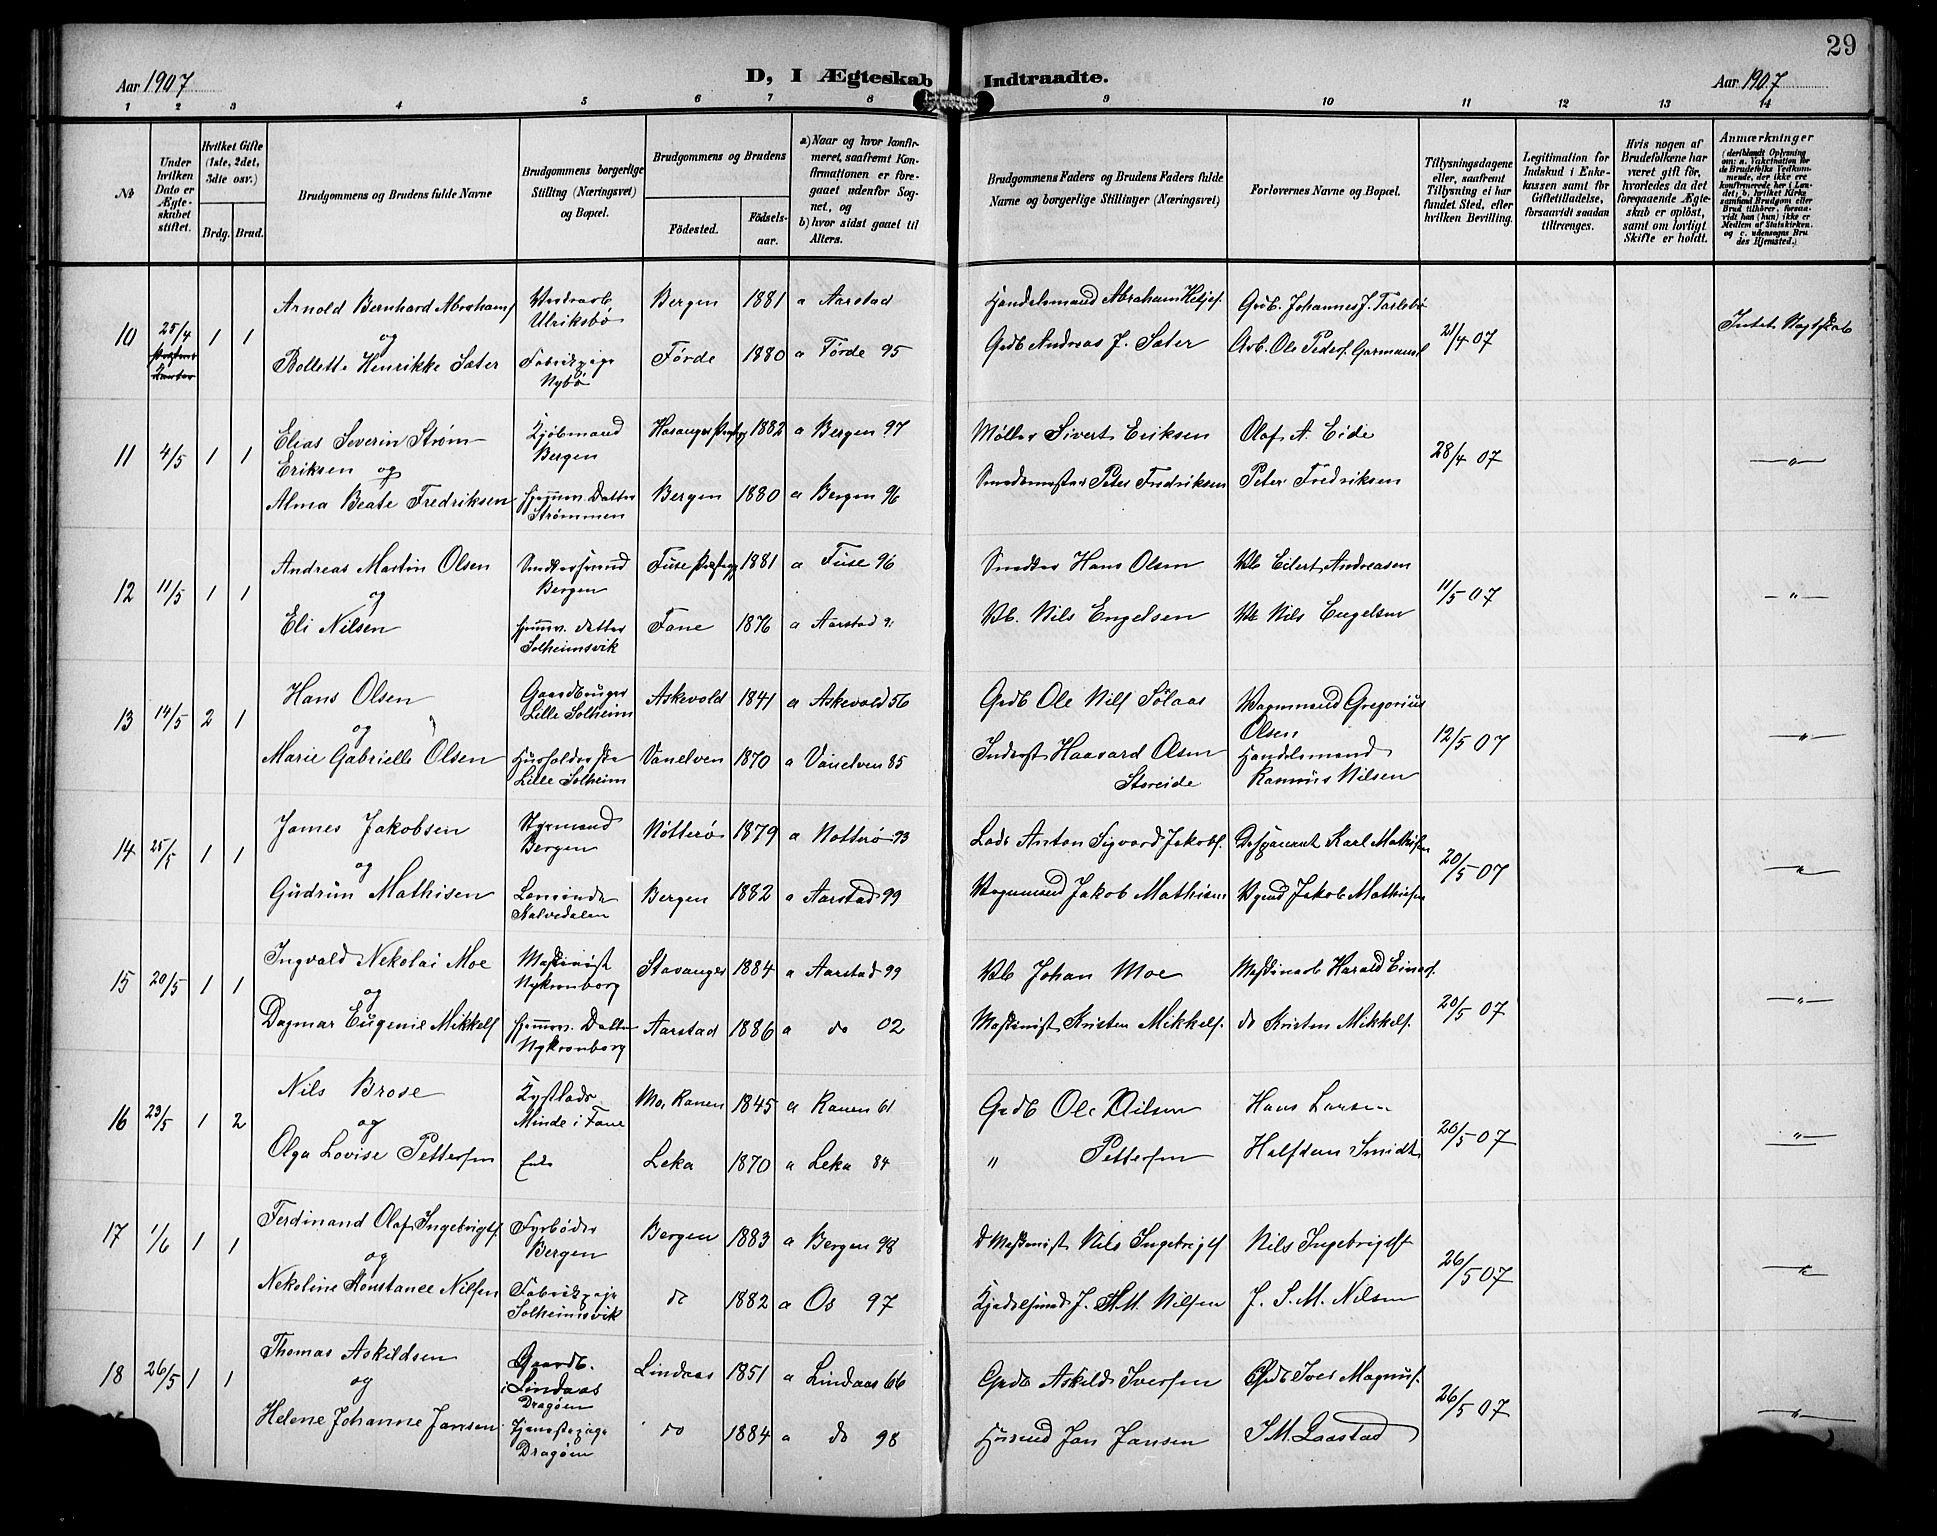 29
Aar 1907
D, I Ægteskab Indtraadte.
Aar 1907
1 2 3 4 5 6 7 8 9 10 11 12 13 14
No
Under hvilken Dato er Ægteskabet stiftet.
Hvilket Gifte (1ste, 2det, 3die osv.)
Brdg. Brud.
Brudgommens og Brudens fulde Navne
Brudgommens borgerlige Stilling (Næringsvei) og Bopæl.
Brudgommens og Brudens
Födested.
Födselsaar.
a) Naar og hvor konfirmeret, saafremt Konfirmationen er foregaaet udenfor Sognet, og
b) hvor sidst gaaet til Alters.
Brudgommens Faders og Brudens Faders fulde Navne og borgerlige Stillinger (Næringsvei)
Forlovernes Navne og Bopæl.
Tillysningsdagene eller, saafremt Tillysning ei har fundet Sted, efter hvilken Bevilling.
Legitimation for Indskud i Enkekassen samt for Giftetilladelse, forsaavidt saadan tiltrænges.
Hvis nogen af Brudefolkene har været gift før, hvorledes da det foregaaende Ægteskab er oplöst, samt om lovligt Skifte er holdt.
Anmærkninger
(deriblandt Oplysning om: a. Vakcination for de Brudefolks Vedkommende, der ikke ere konfirmerede her i Landet; b. hvilket Kirkesamfund Brudgom eller Brud tilhörer, forsaavidt han (hun) ikke er Medlem af Statskirken, og c. udensogns Brudes Hjemsted.)
10 25/4 1 1
Arnold Bernhard Abrahams
og
Bollette Henrikke Sæter
Ulriksbø
Nybø
Bergen 1881 a Aarstad
Førde 1880 a Førde 95
Handelsmand Abraham
Grdb Andreas J. Sæter
Grdb. Johannes J.
Arb. Ole Peders.
21/4 07
Intet Slagtskab
11 4/5 1 1
Elias Severin Strøm
Eriksen og
Alma Beate Fredriksen
Kjöbmand
Bergen
Hjemv. Datter
Strømmen
1882 a Bergen 97
Bergen 1880 a Bergen 96
Møller Sivert Eriksen
Smedemester Peter Fredriksen
Olaf A. Eide
Peter Fredriksen
28/4 07
— " —
12 11/5 1 1
Andreas Martin Olsen
og
Eli Nilsen
Bergen
Hjemv. datter
Solheimsvik
Fuse 1881 a Fuse 96
Fane 1876 a Aarstad 91
Hans Olsen
Nils Engelsen
Eilert Andreasen
Nils Engelsen
11/5 07
— " —
13 14/5 2 1
Hans Olsen
og
Marie Gabrielle Olsen
Gaardbruger
Lille Solheim
Husholderske
Lille Solheim
Askevold 1841 a Askevold 56
Vanelven 1870 a Vanelven 85
Grdb Ole Nils Sølaas
Inderst Haavard Olsen
Storeide
Vognmand Gregorius
Olsen
Handelsmand
Rasmus Nilsen
12/5 07
— " —
14 25/5 1 1
James Jakobsen
og
Gudrun Mathisen
Styrmand
Bergen
Kalvedalen
Nøtterø 1879 a Nøtterø 93
Bergen 1882 a Aarstad 99
Lods Anton Sigvard Jakobs.
Vognmand Jakob Mathisen
Karl Mathisen
Jakob Mathisen
20/5 07
— " —
15 20/5 1 1
Ingvald Nekolai Moe
og
Dagmar Eugenie Mikkels
Maskinist
Nykronborg
Hjemv. Datter
Nykronborg
Stavanger 1884 a Aarstad 99
Aarstad 1886 a do 02
Johan Moe
Maskinist Kristen Mikkels.
Maskinarb Harald Einars.
do Kristen Mikkels.
20/5 07
— " —
16 23/5 1 2
Nils Brose
og
Olga Lovise Pettersen
Kystlods
Minde i Fane
Enke
Mo, Ranen 1845 a Ranen 61
Leka 1870 a Leka 84
Grdb Ole Nilsen
" Pettersen
Hans Larsen
Halfdan Smidt
20/5 07
— " —
17 1/6 1 1
Ferdinand Olaf Ingebrigts.
og
Nekoline Konstance Nilsen
Fyrbøder
Bergen
Fabrikpige
Solheimsvik
Bergen 1883 a Bergen 98
do 1882 a Os 97
Maskinist Nils Ingebrigts
J. S. M. Nilsen
Nils Ingebrigts
J. S. M. Nilsen
26/5 07
— " —
18 26/5 1 1
Thomas Askildsen
og
Helene Johanne Jansen
Gaardb.
i Lindaas
Dragøen
Tjenestepige
Dragøen
Lindaas 1851 a Lindaas 66
do 1884 a do 98
Grdb Askild Iversen
Husmd Jan Jansen
Grdb Iver Magnus.
J. M. Laastad
26/5 07
— " —